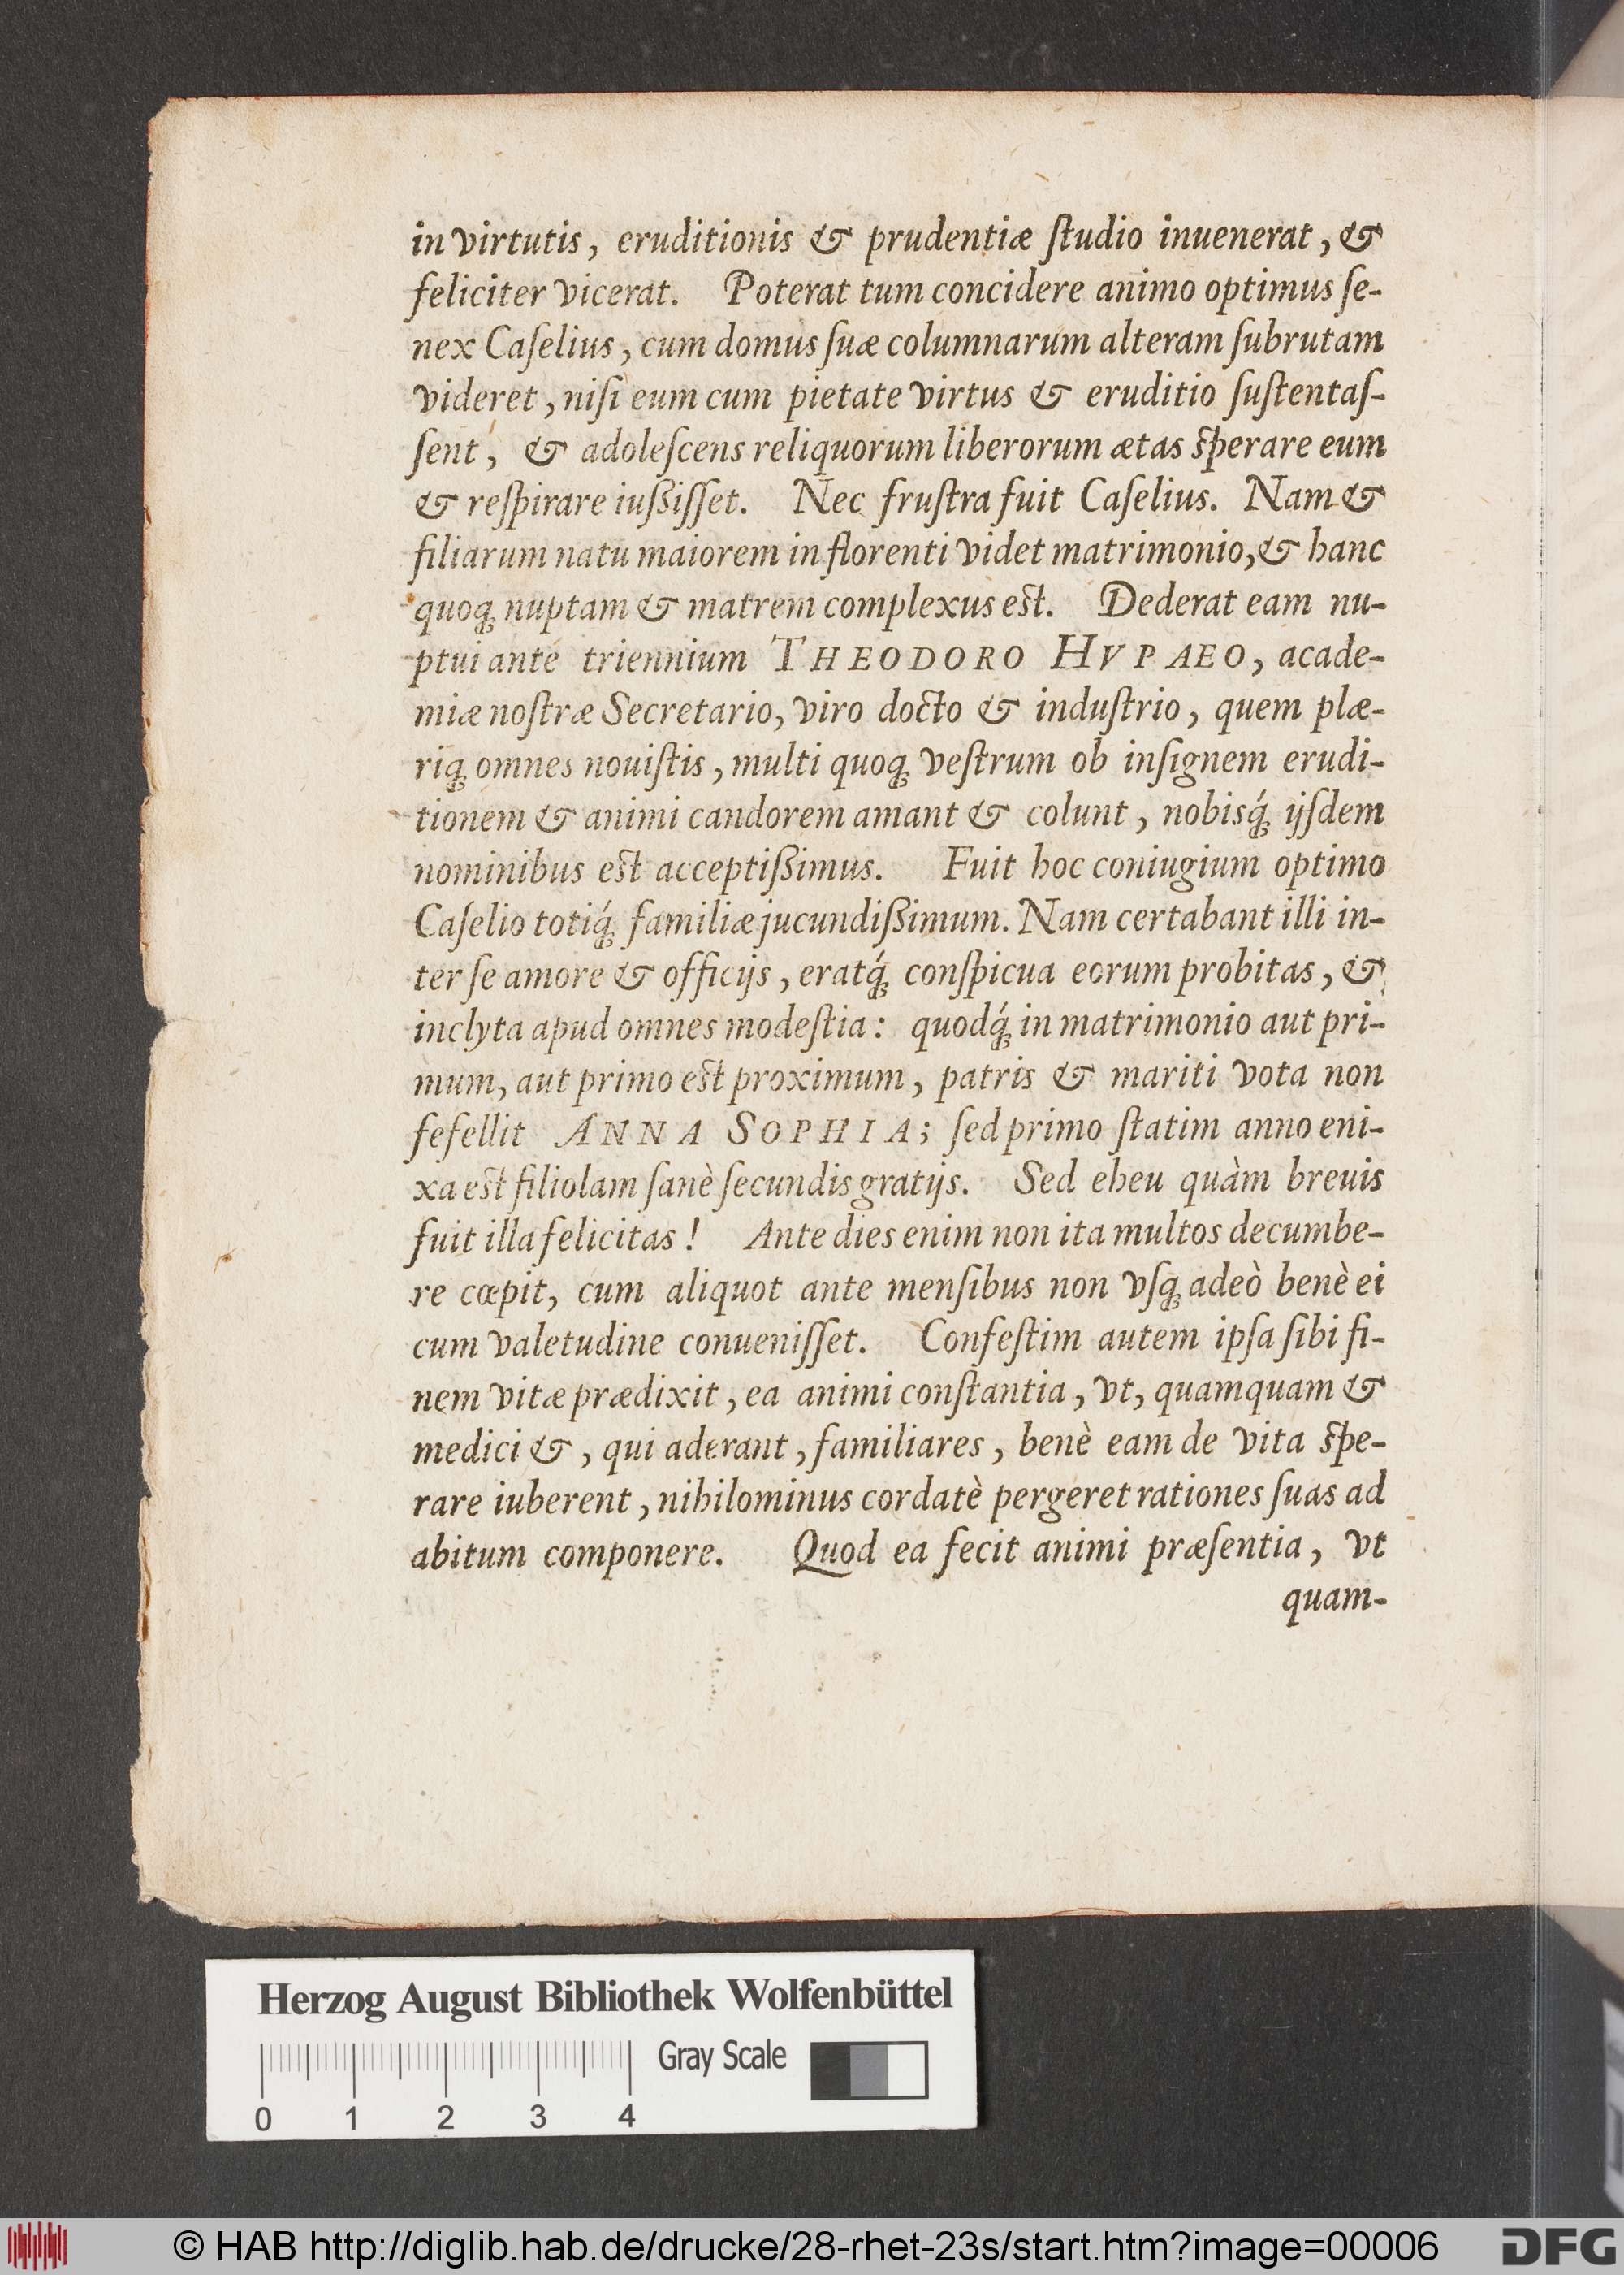 in virtutis, eruditionis & prudentiæ ſtudio inuenerat, &
feliciter vicerat. Poterat tum concidere animo optimus ſe-
nex Caſelius, cum domus ſuæ columnarum alteram ſubrutam
videret, niſi eum cum pietate virtus & eruditio ſuſtentaſ-
ſent, & adoleſcens reliquorum liberorum ætas ſperare eum
& reſpirare iuſſiſſet. Nec fruſtra fuit Caſelius. Nam &
filiarum natu maiorem in florenti videt matrimonio, & hanc
quoq; nuptam & matrem complexus eſt. Dederat eam nu-
ptui ante triennium THEODORO HVPAEO, acade-
miæ noſtræ Secretario, viro docto & induſtrio, quem plæ-
riq; omnes nouiſtis, multi quoq; veſtrum ob inſignem erudi-
tionem & animi candorem amant & colunt, nobisq́; ijſdem
nominibus eſt acceptißimus. Fuit hoc coniugium optimo
Caſelio totiq́; familiæ jucundißimum. Nam certabant illi in-
ter ſe amore & officijs, eratq́; conſpicua eorum probitas, &
inclyta apud omnes modeſtia: quodq́; in matrimonio aut pri-
mum, aut primo eſt proximum, patris & mariti vota non
fefellit ANNA SOPHIA; ſed primo ſtatim anno eni-
xa eſt filiolam ſanè ſecundis gratijs. Sed eheu quàm breuis
fuit illa felicitas! Ante dies enim non ita multos decumbe-
re cœpit, cum aliquot ante menſibus non vſq; adeò benè ei
cum valetudine conueniſſet. Confeſtim autem ipſa ſibi fi-
nem vitæ prædixit, ea animi conſtantia, vt, quamquam &
medici &, qui aderant, familiares, benè eam de vita ſpe-
rare iuberent, nihilominus cordatè pergeret rationes ſuas ad
abitum componere. Quod ea fecit animi præſentia, vt
quam-
Herzog August Bibliothek Wolfenbüttel
Gray Scale
0 1 2 3 4
© HAB http://diglib.hab.de/drucke/28-rhet-23s/start.htm?image=00006
DFG